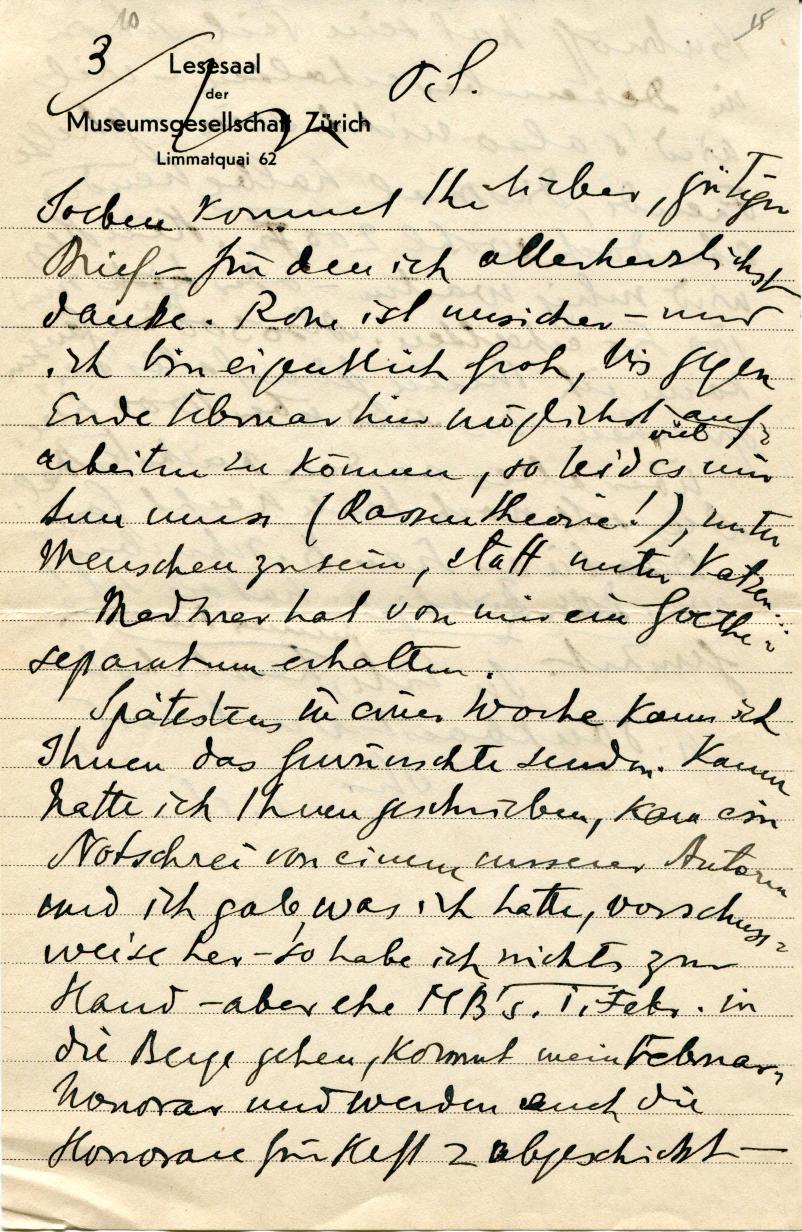 10
18
3
Lesesaal
der
Museumsgesellschaft Zürich
Limmatquai 62
Soeben kommt Ihr lieber, gütiger
Brief – für den ich allerherzlichst
danke. Rom ist unsicher – und
ich bin eigentlich froh, bis gegen
Ende Februar hier möglichst auf-
viel
arbeiten zu können, so leid es mir
tun muss (Rassentheorie!), unter
Menschen zu sein, statt unter Katzen...
Medtner hat von mir ein Goethe-
separatum erhalten.
Spätestens in einer Woche kann ich
Ihnen das Gewünschte senden. Kaum
hatte ich Ihnen geschrieben, kam ein
Notschrei von einem unserer Autoren
und ich gab, was ich hatte, vorschuss-
weise her – so habe ich nichts zur
Hand – aber ehe MB's. 1. Febr. in
die Berge gehen, kommt mein Februar-
honorar und werden auch die
Honorare für Heft 2 abgeschickt –